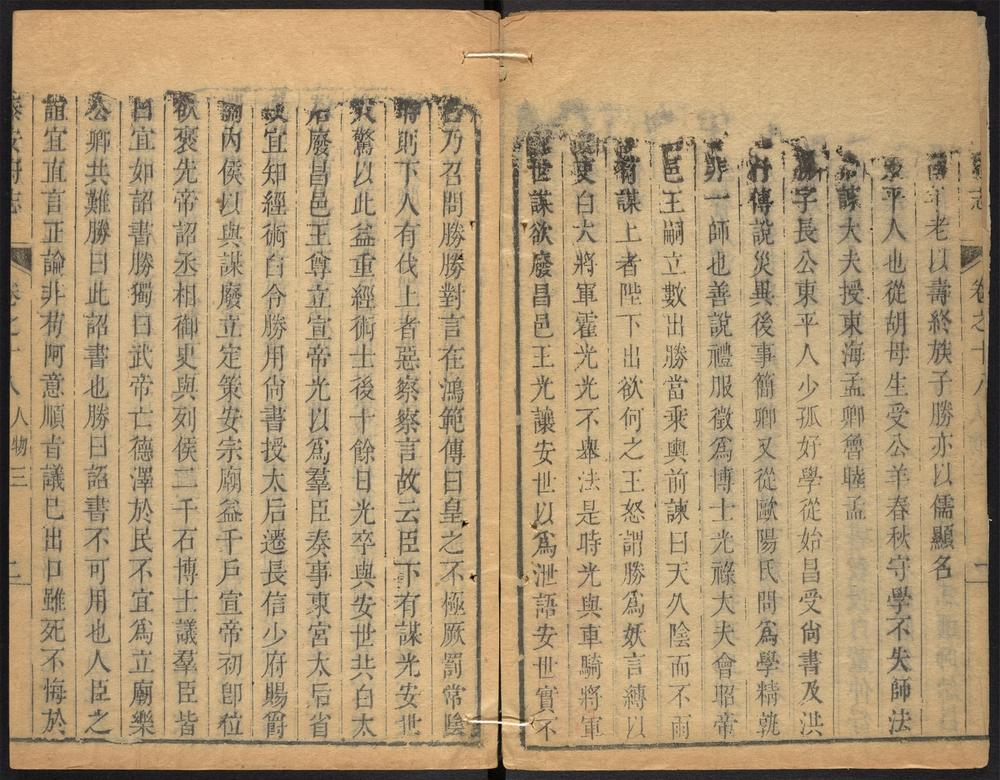 志 卷之十八 二
年老以壽終族子勝亦以儒顯名
東平人也從胡母生受公羊春秋守學不失師法
謀大夫授東海孟卿魯眭孟
勝字長公東平人少孤好學從始昌受尙書及洪
行傳說災異後事簡卿又從歐陽氏問爲學精孰
非一師也善說禮服徵爲博士光祿大夫會昭帝
邑王嗣立數出勝當乘輿前諫曰天久陰而不雨
有謀上者陛下出欲何之王怒謂勝爲妖言縛以
吏白大將軍霍光光不舉法是時光與車騎將軍
世謀欲廢昌邑王光讓安世以爲泄語安世實不
言乃召問勝勝對言在鴻範傳曰皇之不極厥罰常陰
時則下人有伐上者惡察察言故云臣下有謀光安世
大驚以此益重經術士後十餘日光卒與安世共白太
后廢昌邑王尊立宣帝光以爲羣臣奏事東宮太后省
政宜知經術白令勝用尙書授太后遷長信少府賜爵
關內侯以與謀廢立定策安宗廟益千戶宣帝初卽位
欲褒先帝詔丞相御史與列侯二千石博士議羣臣皆
曰宜如詔書勝獨曰武帝亡德澤於民不宜爲立廟樂
公卿共難勝曰此詔書也勝曰詔書不可用也人臣之
誼宜直言正論非苟阿意順旨議已出口雖死不悔於
泰安府志 卷之十八 人物三 二